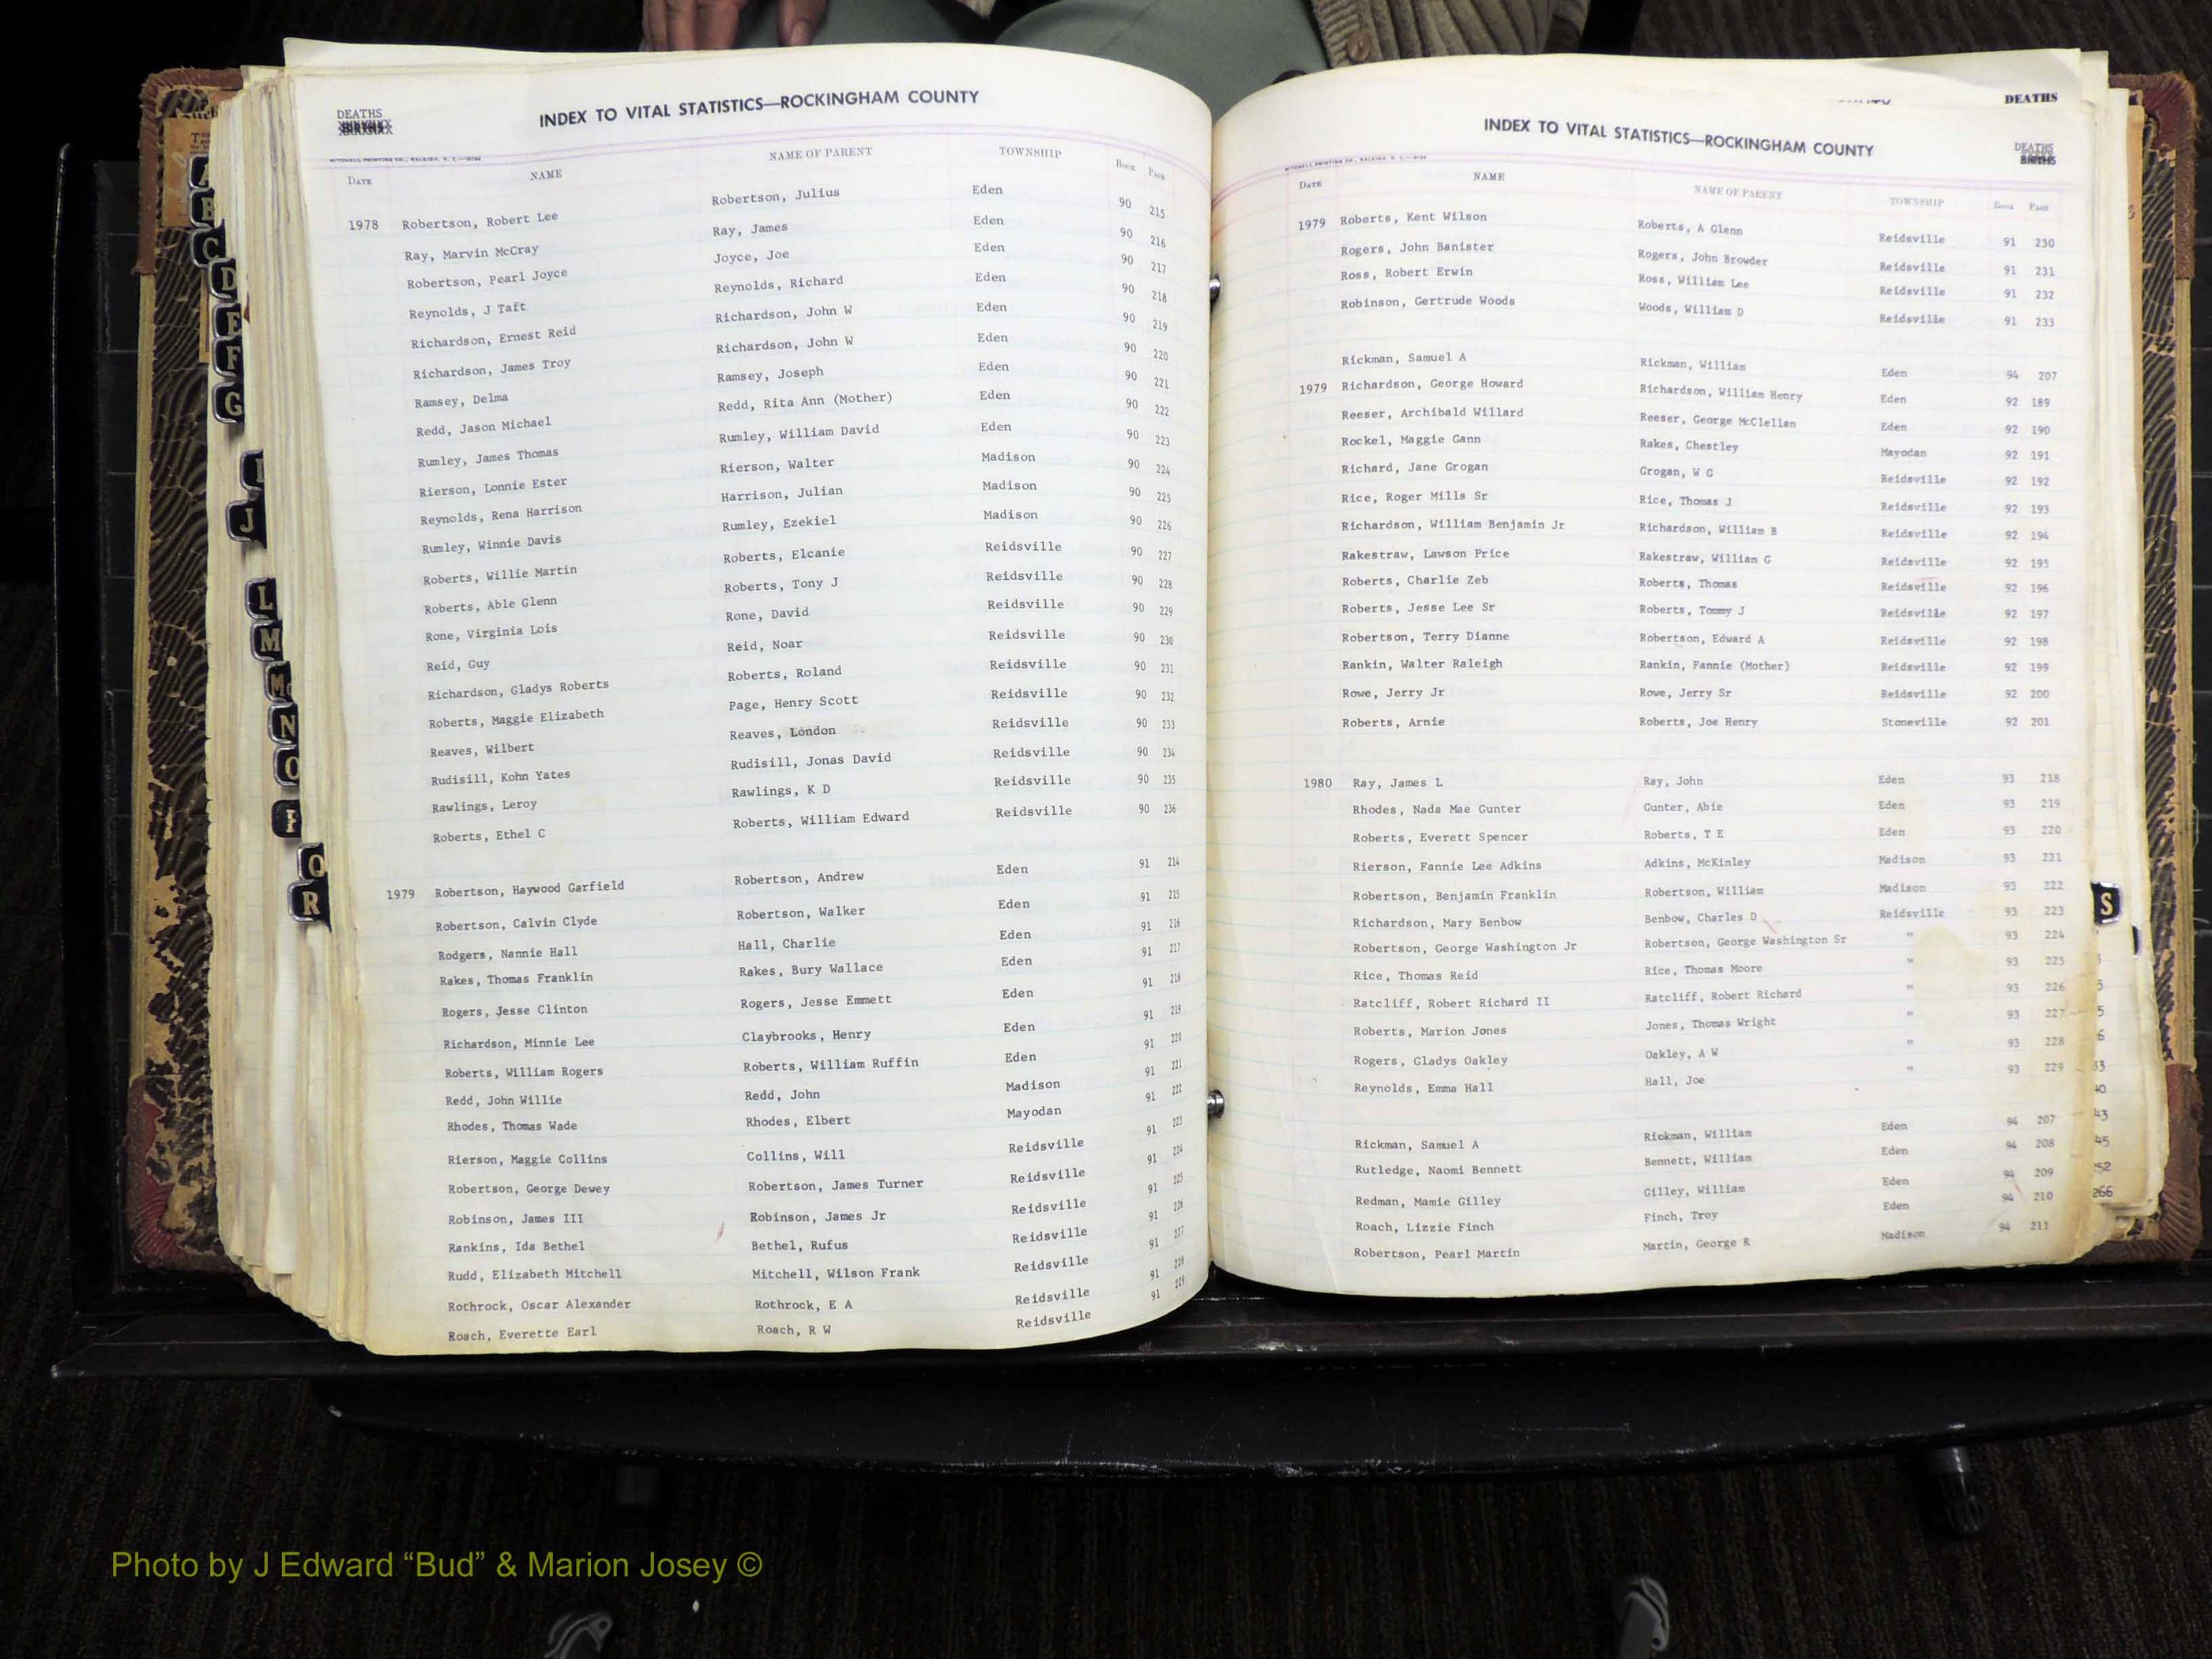 DEATHS
INDEX TO VITAL STATISTICS—ROCKINGHAM COUNTY
MITCHELL PRINTING CO., RALEIGH, N. C.
DATE NAME NAME OF PARENT TOWNSHIP BOOK PAGE
1978 Robertson, Robert Lee Robertson, Julius Eden 90 215
Ray, Marvin McCray Ray, James Eden 90 216
Robertson, Pearl Joyce Joyce, Joe Eden 90 217
Reynolds, J Taft Reynolds, Richard Eden 90 218
Richardson, Ernest Reid Richardson, John W Eden 90 219
Richardson, James Troy Richardson, John W Eden 90 220
Ramsey, Delma Ramsey, Joseph Eden 90 221
Redd, Jason Michael Redd, Rita Ann (Mother) Eden 90 222
Rumley, James Thomas Rumley, William David Eden 90 223
Rierson, Lonnie Ester Rierson, Walter Madison 90 224
Reynolds, Rena Harrison Harrison, Julian Madison 90 225
Rumley, Winnie Davis Rumley, Ezekiel Madison 90 226
Roberts, Willie Martin Roberts, Elcanie Reidsville 90 227
Roberts, Able Glenn Roberts, Tony J Reidsville 90 228
Rone, Virginia Lois Rone, David Reidsville 90 229
Reid, Guy Reid, Noar Reidsville 90 230
Richardson, Gladys Roberts Roberts, Roland Reidsville 90 231
Roberts, Maggie Elizabeth Page, Henry Scott Reidsville 90 232
Reaves, Wilbert Reaves, London Reidsville 90 233
Rudisill, Kohn Yates Rudisill, Jonas David Reidsville 90 234
Rawlings, Leroy Rawlings, K D Reidsville 90 235
Roberts, Ethel C Roberts, William Edward Reidsville 90 236
1979 Robertson, Haywood Garfield Robertson, Andrew Eden 91 214
Robertson, Calvin Clyde Robertson, Walker Eden 91 215
Rodgers, Nannie Hall Hall, Charlie Eden 91 216
Rakes, Thomas Franklin Rakes, Bury Wallace Eden 91 217
Rogers, Jesse Clinton Rogers, Jesse Emmett Eden 91 218
Richardson, Minnie Lee Claybrooks, Henry Eden 91 219
Roberts, William Rogers Roberts, William Ruffin Eden 91 220
Redd, John Willie Redd, John Madison 91 221
Rhodes, Thomas Wade Rhodes, Elbert Mayodan 91 222
Rierson, Maggie Collins Collins, Will Reidsville 91 223
Robertson, George Dewey Robertson, James Turner Reidsville 91 224
Robinson, James III Robinson, James Jr Reidsville 91 225
Rankins, Ida Bethel Bethel, Rufus Reidsville 91 226
Rudd, Elizabeth Mitchell Mitchell, Wilson Frank Reidsville 91 227
Rothrock, Oscar Alexander Rothrock, E A Reidsville 91 228
Roach, Everette Earl Roach, R W Reidsville 91 229
DEATHS
INDEX TO VITAL STATISTICS—ROCKINGHAM COUNTY
DEATHS
BIRTHS
MITCHELL PRINTING CO., RALEIGH, N. C.
DATE NAME NAME OF PARENT TOWNSHIP BOOK PAGE
1979 Roberts, Kent Wilson Roberts, A Glenn Reidsville 91 230
Rogers, John Banister Rogers, John Browder Reidsville 91 231
Ross, Robert Erwin Ross, William Lee Reidsville 91 232
Robinson, Gertrude Woods Woods, William D Reidsville 91 233
Rickman, Samuel A Rickman, William Eden 94 207
1979 Richardson, George Howard Richardson, William Henry Eden 92 189
Reeser, Archibald Willard Reeser, George McClellan Eden 92 190
Rockel, Maggie Gann Rakes, Chestley Mayodan 92 191
Richard, Jane Grogan Grogan, W G Reidsville 92 192
Rice, Roger Mills Sr Rice, Thomas J Reidsville 92 193
Richardson, William Benjamin Jr Richardson, William B Reidsville 92 194
Rakestraw, Lawson Price Rakestraw, William G Reidsville 92 195
Roberts, Charlie Zeb Roberts, Thomas Reidsville 92 196
Roberts, Jesse Lee Sr Roberts, Tommy J Reidsville 92 197
Robertson, Terry Dianne Robertson, Edward A Reidsville 92 198
Rankin, Walter Raleigh Rankin, Fannie (Mother) Reidsville 92 199
Rowe, Jerry Jr Rowe, Jerry Sr Reidsville 92 200
Roberts, Arnie Roberts, Joe Henry Stoneville 92 201
1980 Ray, James L Ray, John Eden 93 218
Rhodes, Nada Mae Gunter Gunter, Abie Eden 93 219
Roberts, Everett Spencer Roberts, T E Eden 93 220
Rierson, Fannie Lee Adkins Adkins, McKinley Madison 93 221
Robertson, Benjamin Franklin Robertson, William Madison 93 222
Richardson, Mary Benbow Benbow, Charles D Reidsville 93 223
Robertson, George Washington Jr Robertson, George Washington Sr " 93 224
Rice, Thomas Reid Rice, Thomas Moore " 93 225
Ratcliff, Robert Richard II Ratcliff, Robert Richard " 93 226
Roberts, Marion Jones Jones, Thomas Wright " 93 227
Rogers, Gladys Oakley Oakley, A W " 93 228
Reynolds, Emma Hall Hall, Joe " 93 229
Rickman, Samuel A Rickman, William Eden 94 207
Rutledge, Naomi Bennett Bennett, William Eden 94 208
Redman, Mamie Gilley Gilley, William Eden 94 209
Roach, Lizzie Finch Finch, Troy Eden 94 210
Robertson, Pearl Martin Martin, George R Madison 94 211
A
B
C
D
E
F
G
I
J
L
M
Mc
N
O
P
Q
R
S
266
Photo by J Edward “Bud” & Marion Josey ©